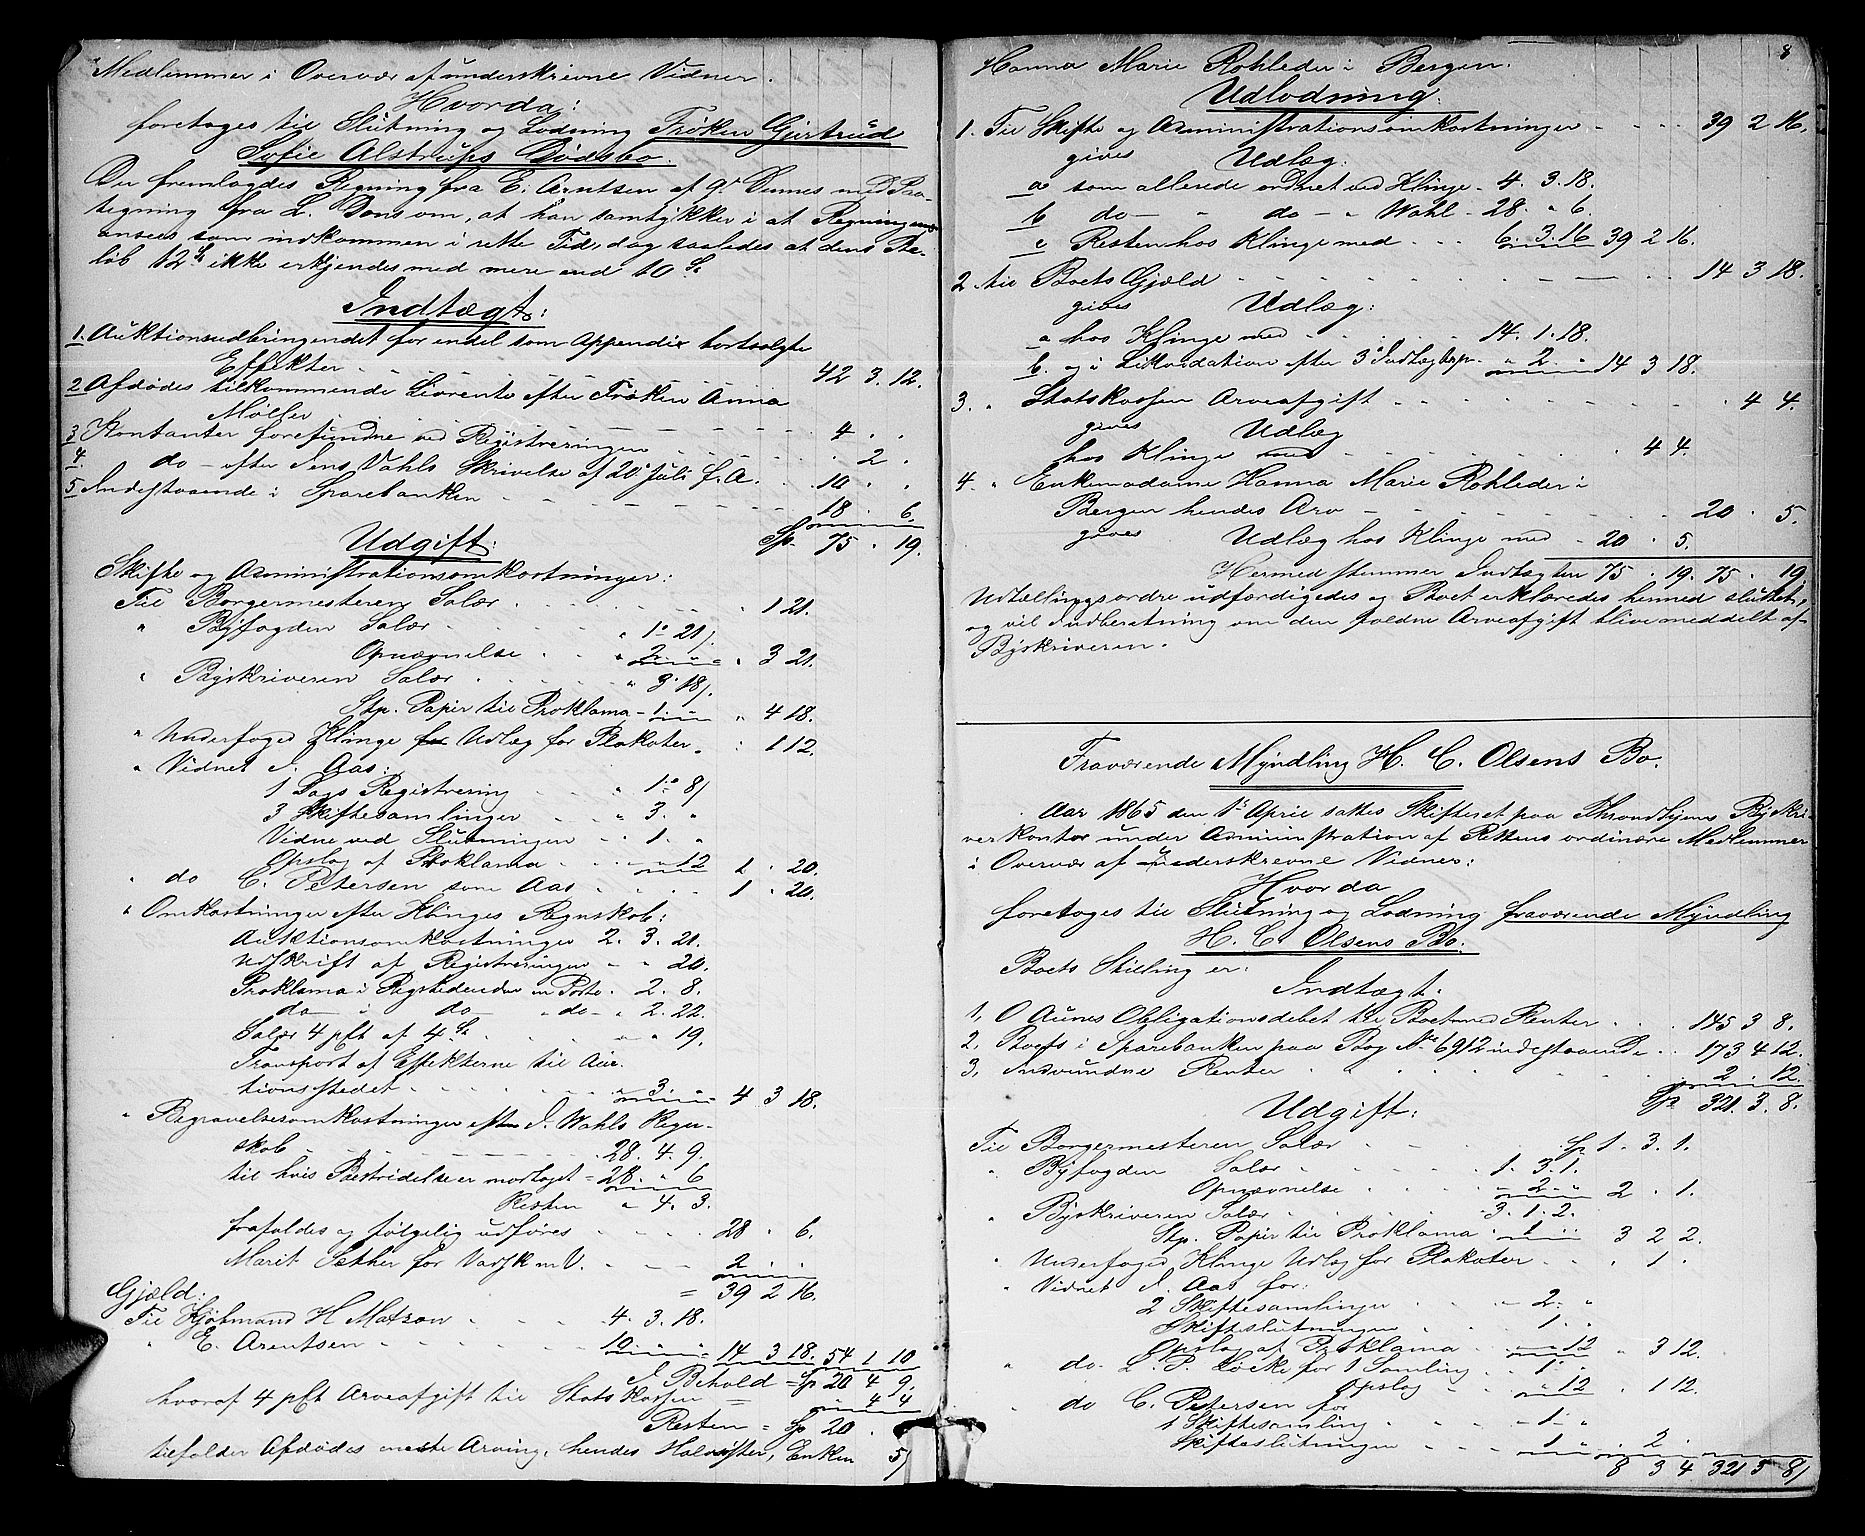 Medlemmer i Overvær af underskrevne Vidner.
Hvorda:
foretoges til Slutning og Lodning Frøken Gjertrud
Sofie Alstrups Dødsbo.
Der fremlagdes Regning fra E. Arntsen af g. D. med Paa-
tegning fra L. om, at han samtykker i at Regningen
ansees som indkommen i rette Tid, dog saaledes at dens Be-
løb 12 ikke erkjendes med mere end 10
Indtægt:
1. Auktionsudbringendet for endel som Appendix bortsolgte
Effekter 42 3. 12.
2. Afdødes tilkommende Livrente efter Frøken Anna
Møller 4 . .
3. Kontanter forefundne ved Registreringen . 2 .
4. do efter Jens Wahls Skrivelse af 20 Juli f. A. 10 . .
5. Indestaaende i Sparebanken 18 . 6.
Sp. 75 . 19.
Udgift:
Skifte og Administrationsomkostninger:
Til Borgermesteren Salær 1 21.
" Byfogden Salær " 1 " 21/.
Opnævnelse " 2. " " 3 21.
" Byskriveren Salær " 3. 18/.
Stp. Papir til Proklama - 1. " " 4 18.
" Underfoged Klinge Udlæg for Plakater " 1 12.
" Vidnet J. Aas:
1 Dags Registrering 1 " 8/
3 Skiftesamlinger " 3. "
Vidne ved Slutningen 1. "
Opslag af Proklama " " 12 1 . 20.
" do C. Petersen som Aas 1 . 20.
" Omkostninger efter Klinges Regnskab:
Auktionsomkostninger 2. 3. 21.
Udskrift af Registreringen " " 20.
Proklama i m Porto " 2. 8.
do i do " do " 2. 22.
Salær 4 pCt af 4 " " 19.
Transport af Effekterne til Auk-
tionsstedet " 3. " 4 3 18.
" Begravelsesomkostninger efter J. Wahls Regn-
skab 28. 4. 9.
til hvis Bestridelse er modtaget = 28. " 6
Resten " 4. 3.
frafaldes og følgelig udføres 28 . 6.
Maret Sæther for Vadsk m. V. 2 . .
= 39 2 16.
Gjæld:
Til Kjøbmand H Matzow 4. 3. 18.
" E. Arentsen 10 " " = 14 3 18. 54 1 10
I Behold = Sp 20 4 9.
hvoraf 4 pCt Arveafgift til Stats Kassen = 4 4
Resten = Sp 20 . 5/
tilfalder Afdødes eneste Arving, hendes Halvsøster, Enken
8
Hanna Marie Rohleder i Bergen.
Udlodning:
1. Til Skifte og Administrationsomkostninger 39 2 16.
gives Udlæg:
a som allerede ordnet ved Klinge - 4. 3. 18.
b do " do " Wahl - 28. " 6.
c Resten hos Klinge med 6. 3. 16 39 2 16.
2. til Boets Gjæld 14 3 18.
gives Udlæg:
a hos Klinge med 14. 1. 18.
b. og i Likvidation efter 3 Indtægtsp. " 2. " 14 3 18.
3. " Statskassen Arveafgift 4 4.
gives Udlæg
hos Klinge med 4 4.
4. " Enkemadame Hanna Marie Rohleder i
Bergen hendes Arv 20 . 5.
gives Udlæg hos Klinge med " 20 . 5.
Hermed stemmer Indtægten 75 . 19. 75 . 19
Udtællingsordre udfærdigedes og Boet erklæredes hermed sluttet,
og vil Indberetning om den faldne Arveafgift blive meddelt af
Byskriveren.
Fraværende Myndling H. C. Olsens Bo.
Aar 1865 den 1 April sattes Skifteret paa Throndhjems Byskri-
verkontor under Administration af Rettens ordinære Medlemmer
i Overvær af underskrevne Vidner:
Hvorda
foretoges til Slutning og Lodning fraværende Myndling
H. C. Olsens Bo.
Boets Stilling er:
Indtægt.
1. O Aunes Obligationsdebet til Boet med Renter 145 3 8.
2. Boets i Sparebanken paa Bog No 6912 indestaaende 173 4 12.
3. Indvundne Renter 2 . 12.
Sp. 321. 3. 8.
Udgift:
Til Borgermesteren Salær Sp 1. 3. 1.
" Byfogden Salær 1. 3. 1.
Opnævnelse " 2. " 2 . 1.
" Byskriveren Salær 3. 1. 2.
Stp. Papir til Proklama " 1 " 3 2 2.
" Underfoged Klinge Udlæg for Plakater " 1 .
" Vidnet J. Aas for:
2 Skiftesamlinger " 2. "
Skifteslutningen " 1. "
Opslag af Proklama " " 12 " 3 12.
" do. L. P. Løcke for 1 Samling " 1 "
Opslag " " 12 . 1 12.
" do C. Petersen for
1 Skiftesamling " 1 "
Skifteslutningen " 1 " . 2 .
8 3 4 321 3 8/